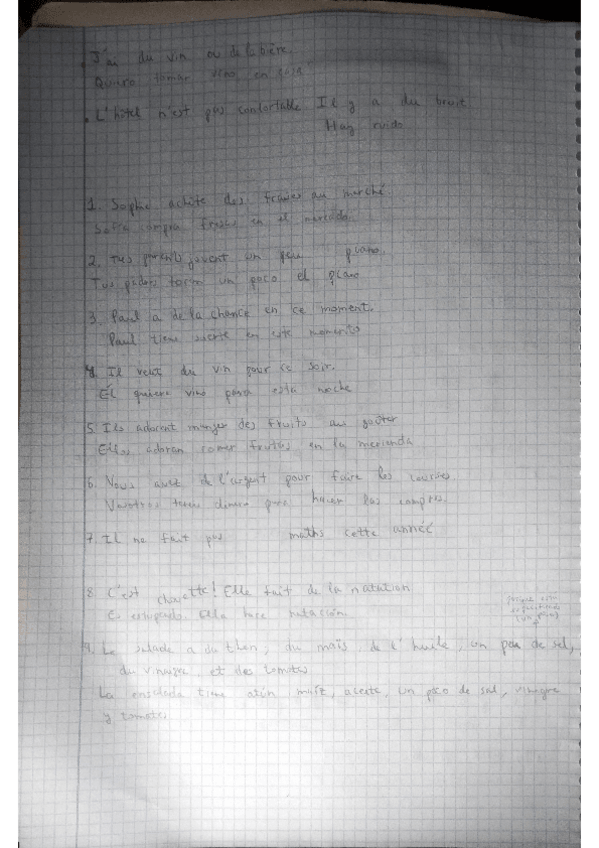 J'ai du vin ou de la bière.
Quiero tomar vino, en
L'hôtel n'est pas confortable Il y a du bruit
Hay ruido
1. Sophie achète des fraises au marché.
compra en el mercado
2. Tus jouent un peu piano.
Tus un poco el piano
3. Paul a de la chance en ce moment.
Paul tiene suerte en este momento
4. Il veut du vin pour ce soir.
Él quiere vino para esta noche
5. Ils adorent manger des fruits au goûter
Ellos adoran comer frutas en la merienda
6. Vous avez de l'argent pour faire les courses
Vosotros dinero para hacer las compras.
7. Il ne fait pas maths cette année
8. C'est chouette! Elle fait de la natation
Ella hace natación
9. La salade a du thon, du maïs, de l'huile, un peu de sel,
du vinaigre, et des tomates
La ensalada tiene atún, maíz, aceite, un poco de sal, vinagre
y tomates